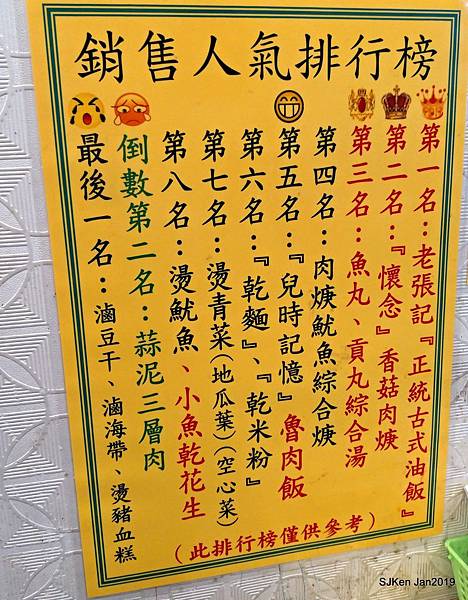 銷售人氣排行榜
第一名:老張記『正統古式油飯』
第二名:『懷念』香菇肉焿
第三名:魚丸、貢丸綜合湯
第四名:肉焿魷魚綜合焿
第五名:『兒時記憶』魯肉飯
第六名:『乾麵』、『乾米粉』
第七名:燙青菜(地瓜葉)(空心菜)
第八名:燙魷魚、小魚乾花生
倒數第二名:蒜泥三層肉
最後一名:滷豆干、滷海帶、燙豬血糕
(此排行榜僅供參考)
SJKen Jan2019